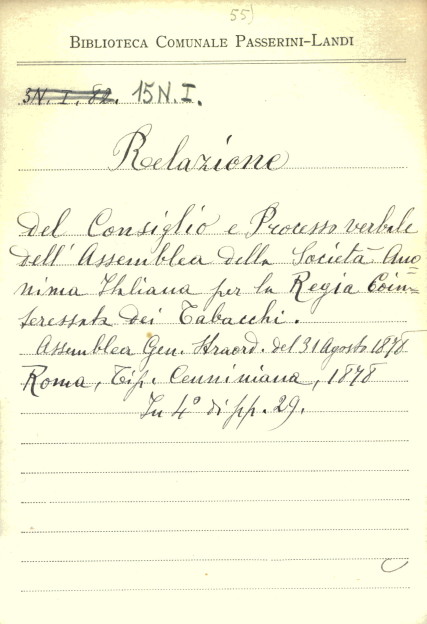 55)
BIBLIOTECA COMUNALE PASSERINI-LANDI
3N. I. 82. 15 N. I.
Relazione
del Consiglio e Processo verbale
dell'Assemblea della Società Ano=
nima Italiana per la Regia Coin=
teressata dei Tabacchi.
Assemblea Gen. Straord. del 31 Agosto 1878
Roma, Tip. Cenniniana, 1878
In 4° di pp. 29.